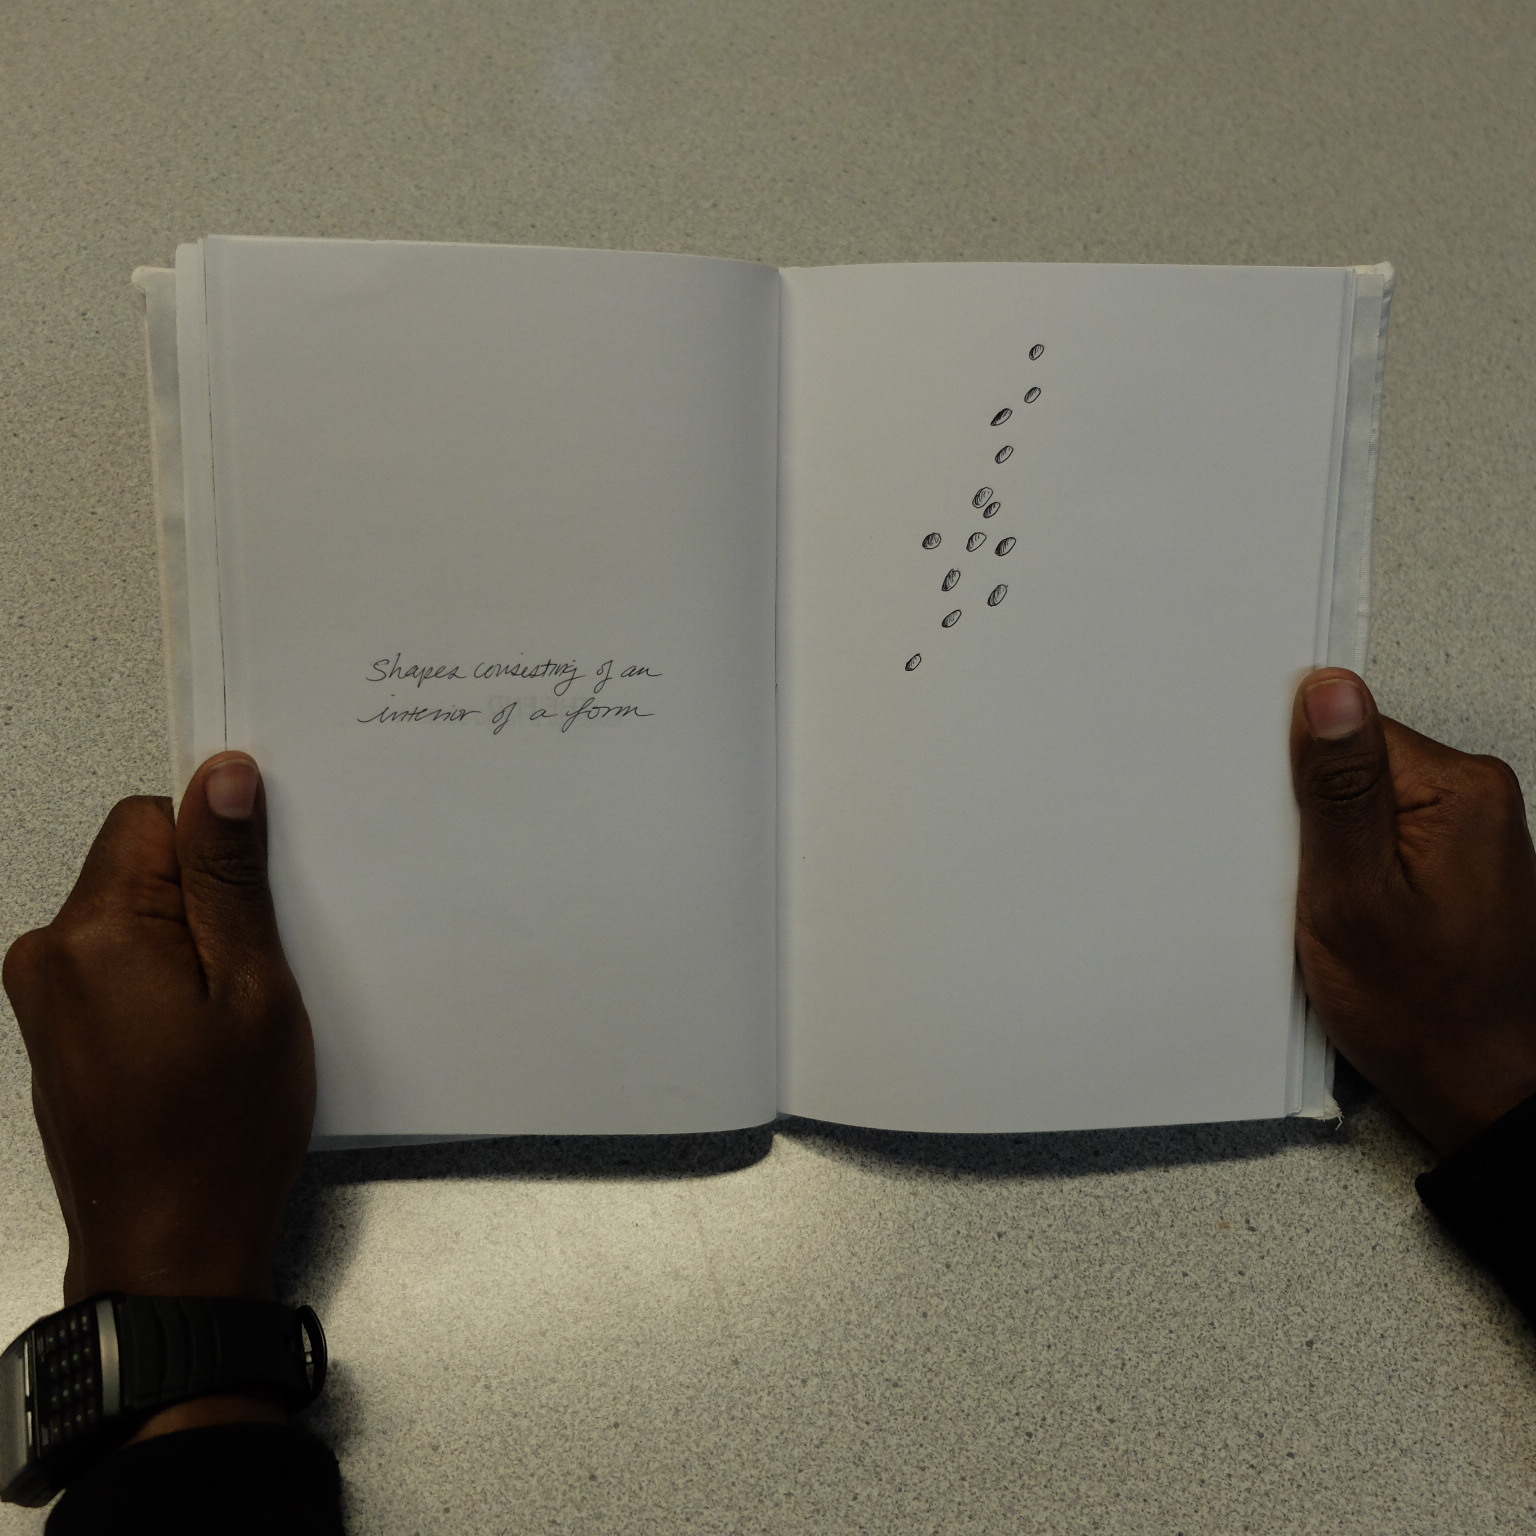 Shapes consisting of an
interior of a form